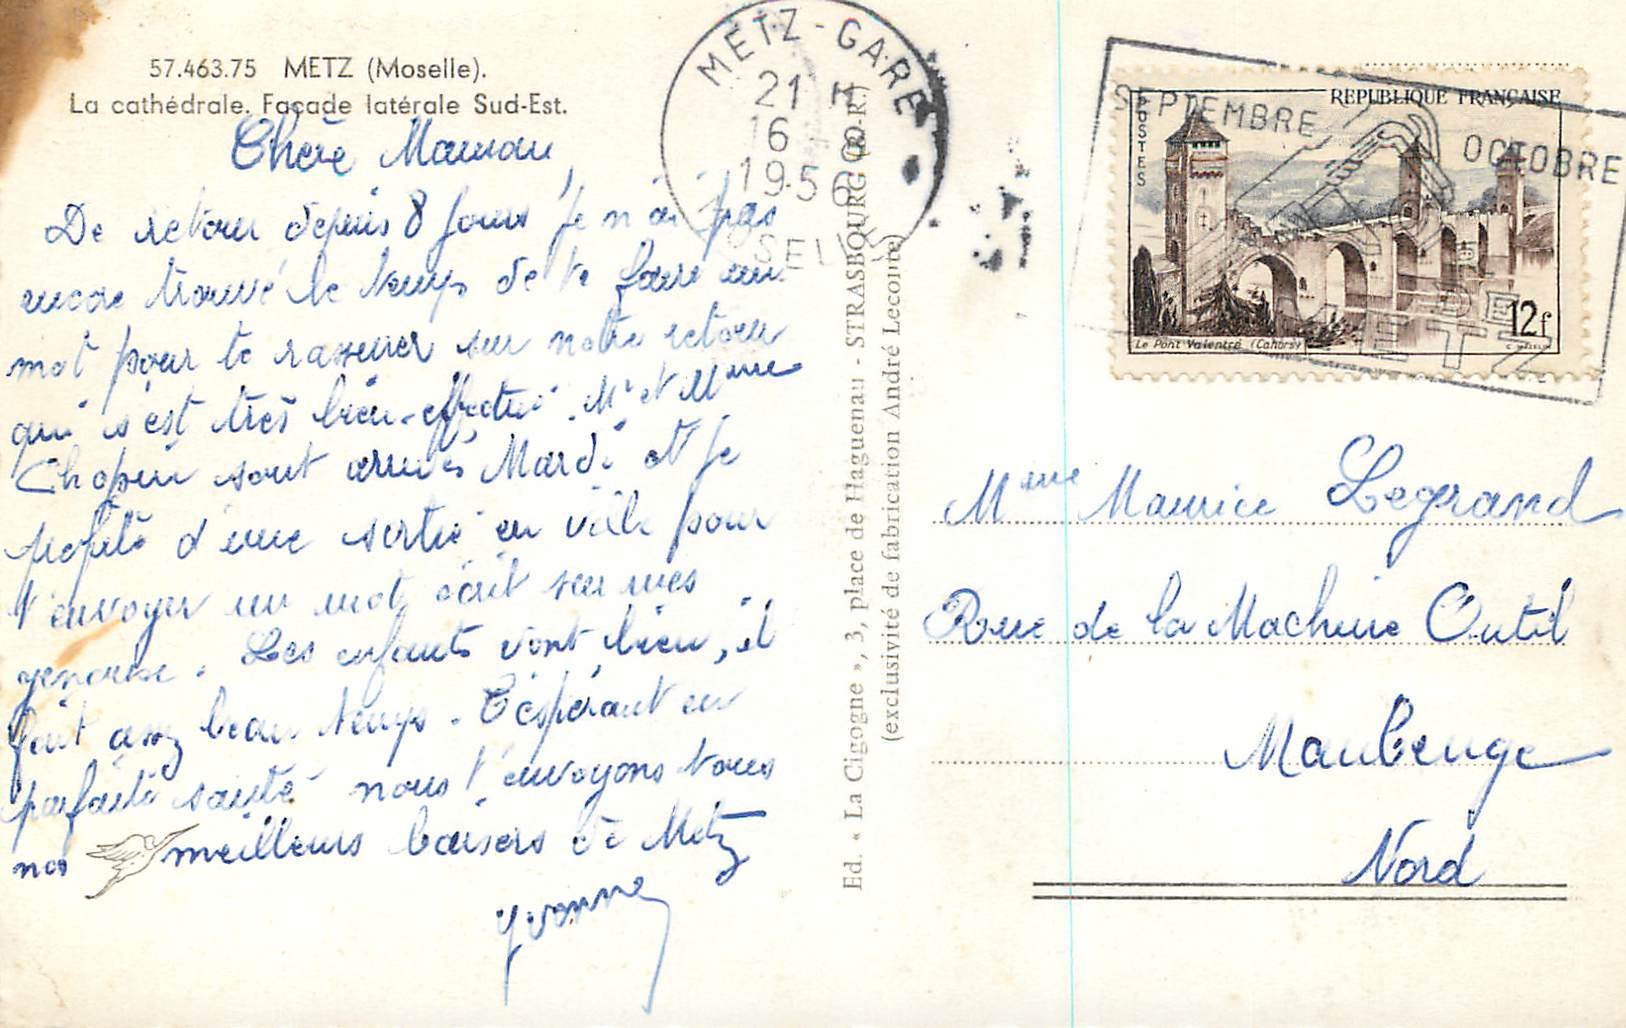 57.463.75 METZ (Moselle).
La cathédrale. Façade latérale Sud-Est.
Chère Maman,
De retour depuis 8 jours je n'ai pas
encore trouvé le temps de te faire un
mot pour te rassurer sur notre retour
qui s'est très bien effectué. Mr et Mme
Chopin sont arrivés Mardi et je
profite d'une sortie en ville pour
t'envoyer un mot écrit sur mes
genoux. Les enfants vont bien, il
fait assez beau temps. T'espérant en
parfaite santé nous t'envoyons tous
nos meilleurs baisers de Metz
Yvonne
Ed. « La Cigogne », 3, place de Haguenau - STRASBOURG (B.-R.)
(exclusivité de fabrication André Leconte)
METZ-GARE
21 H
16
1956
MOSELLE
SEPTEMBRE OCTOBRE
METZ
REPUBLIQUE FRANÇAISE
POSTES
12f
Le Pont Valentré (Cahors)
Mme Maurice Legrand
Rue de la Machine Outil
Maubeuge
Nord